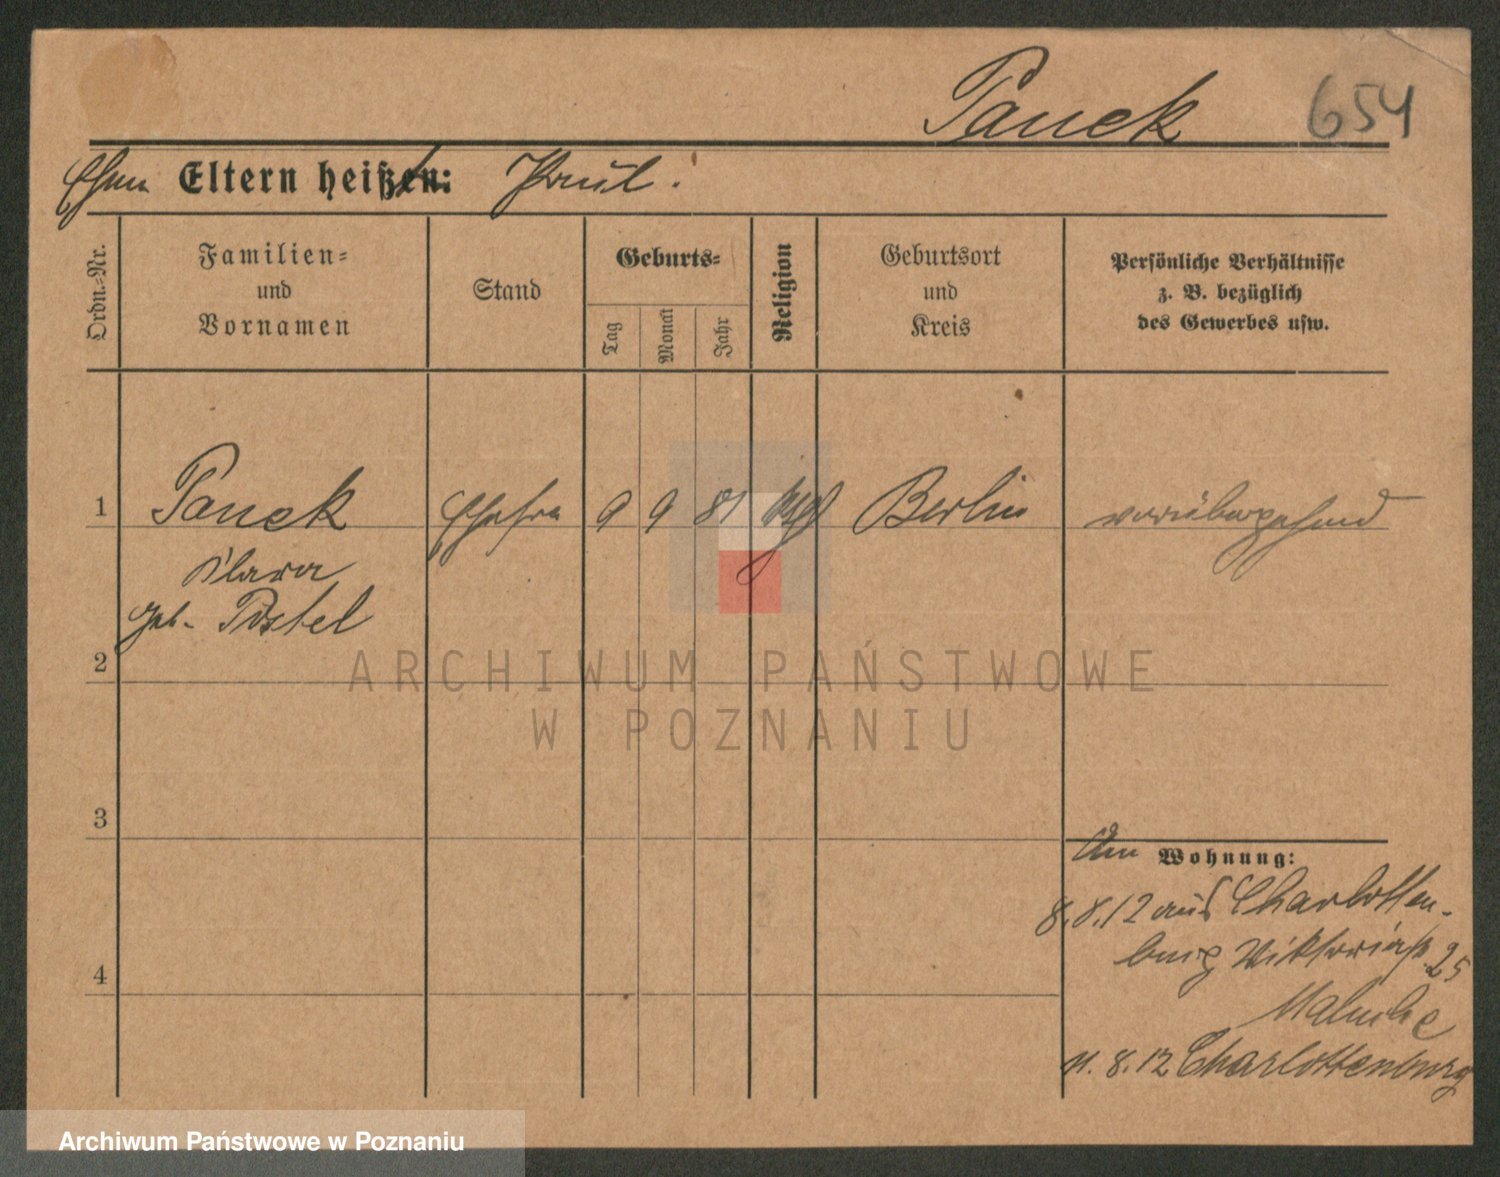 Panek 654
Eltern heißen: Paul.
Ordn.-Nr.
Familien-
und
Vornamen
Stand
Geburts-
Tag
Monat
Jahr
Religion
Geburtsort
und
Kreis
Persönliche Verhältnisse
z. B. bezüglich
des Gewerbes usw.
1 Panek Ehefra 9 9 81 Berlin vorübergehend
Klara
geb. Postel
2
3
4
Am Wohnung:
8.8.12 aus Charlotten-
burg Viktoriastr. 25
11.8.12 Charlottenburg
ARCHIWUM PAŃSTWOWE
W POZNANIU
Archiwum Państwowe w Poznaniu